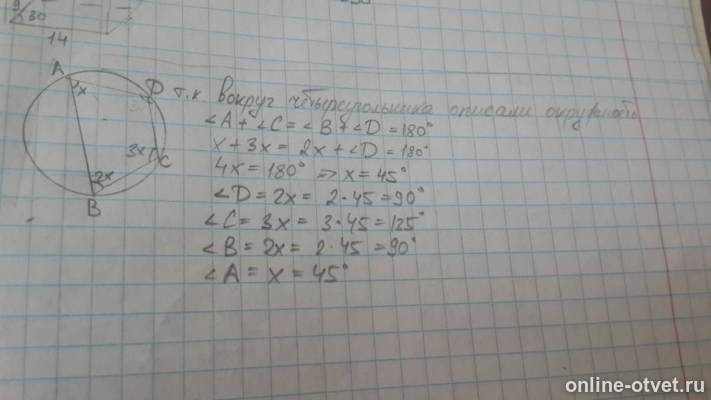 30
14
A
x
D
3x
C
2x
B
т.к вокруг четырехугольника описали окружность
∠A + ∠C = ∠B + ∠D = 180°
x + 3x = 2x + ∠D = 180°
4x = 180° => x = 45°
∠D = 2x = 2·45 = 90°
∠C = 3x = 3·45 = 135°
∠B = 2x = 2·45 = 90°
∠A = x = 45°
online-otvet.ru